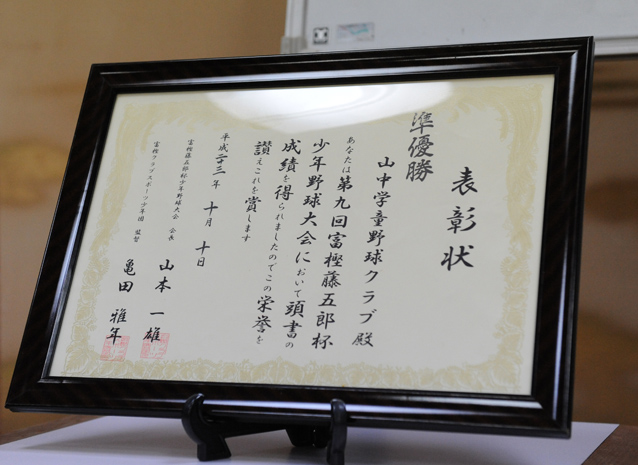 表彰状
準優勝
山中学童野球クラブ 殿
あなたは第九回富樫藤五郎杯
少年野球大会において頭書の
成績を得られましたのでこの栄誉を
讃えこれを賞します
平成二十二年 十月 十日
富樫藤五郎杯少年野球大会 会長
山本 一雄
富樫クラブスポーツ少年団 監督
亀田 雅年